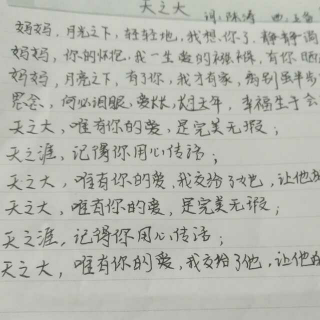 天之大
词:陈涛 曲:王备
妈妈,月光之下,轻轻地,我想你了,静静淌
妈妈,你的怀抱,我一生爱的襁褓,有你晒
妈妈,月亮之下,有了你,我才有家,离别虽半步
思念,何必泪眼,爱长长过天年,幸福生于会
天之大,唯有你的爱,是完美无瑕;
天之涯,记得你用心传话;
天之大,唯有你的爱,我交给了他,让他
天之大,唯有你的爱,是完美无瑕;
天之涯,记得你用心传话;
天之大,唯有你的爱,我交给了他,让他